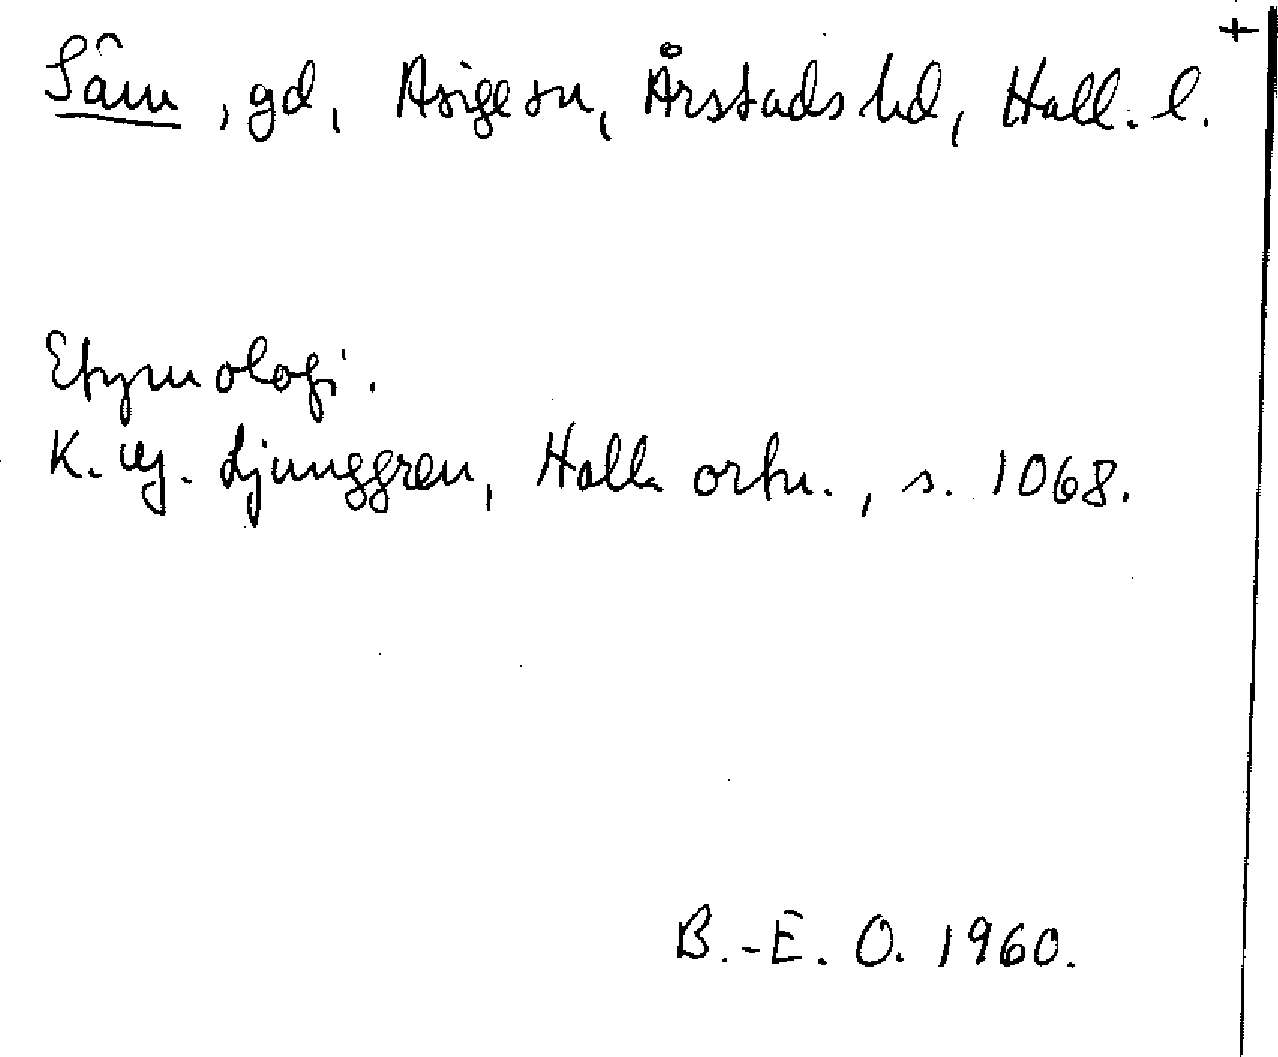 +
Sâm, gd, Asige sn, Årstads hd, Hall. l.
Etymologi.
K. G. Ljunggren, Halls ortn., s. 1068.
B.-E. O. 1960.